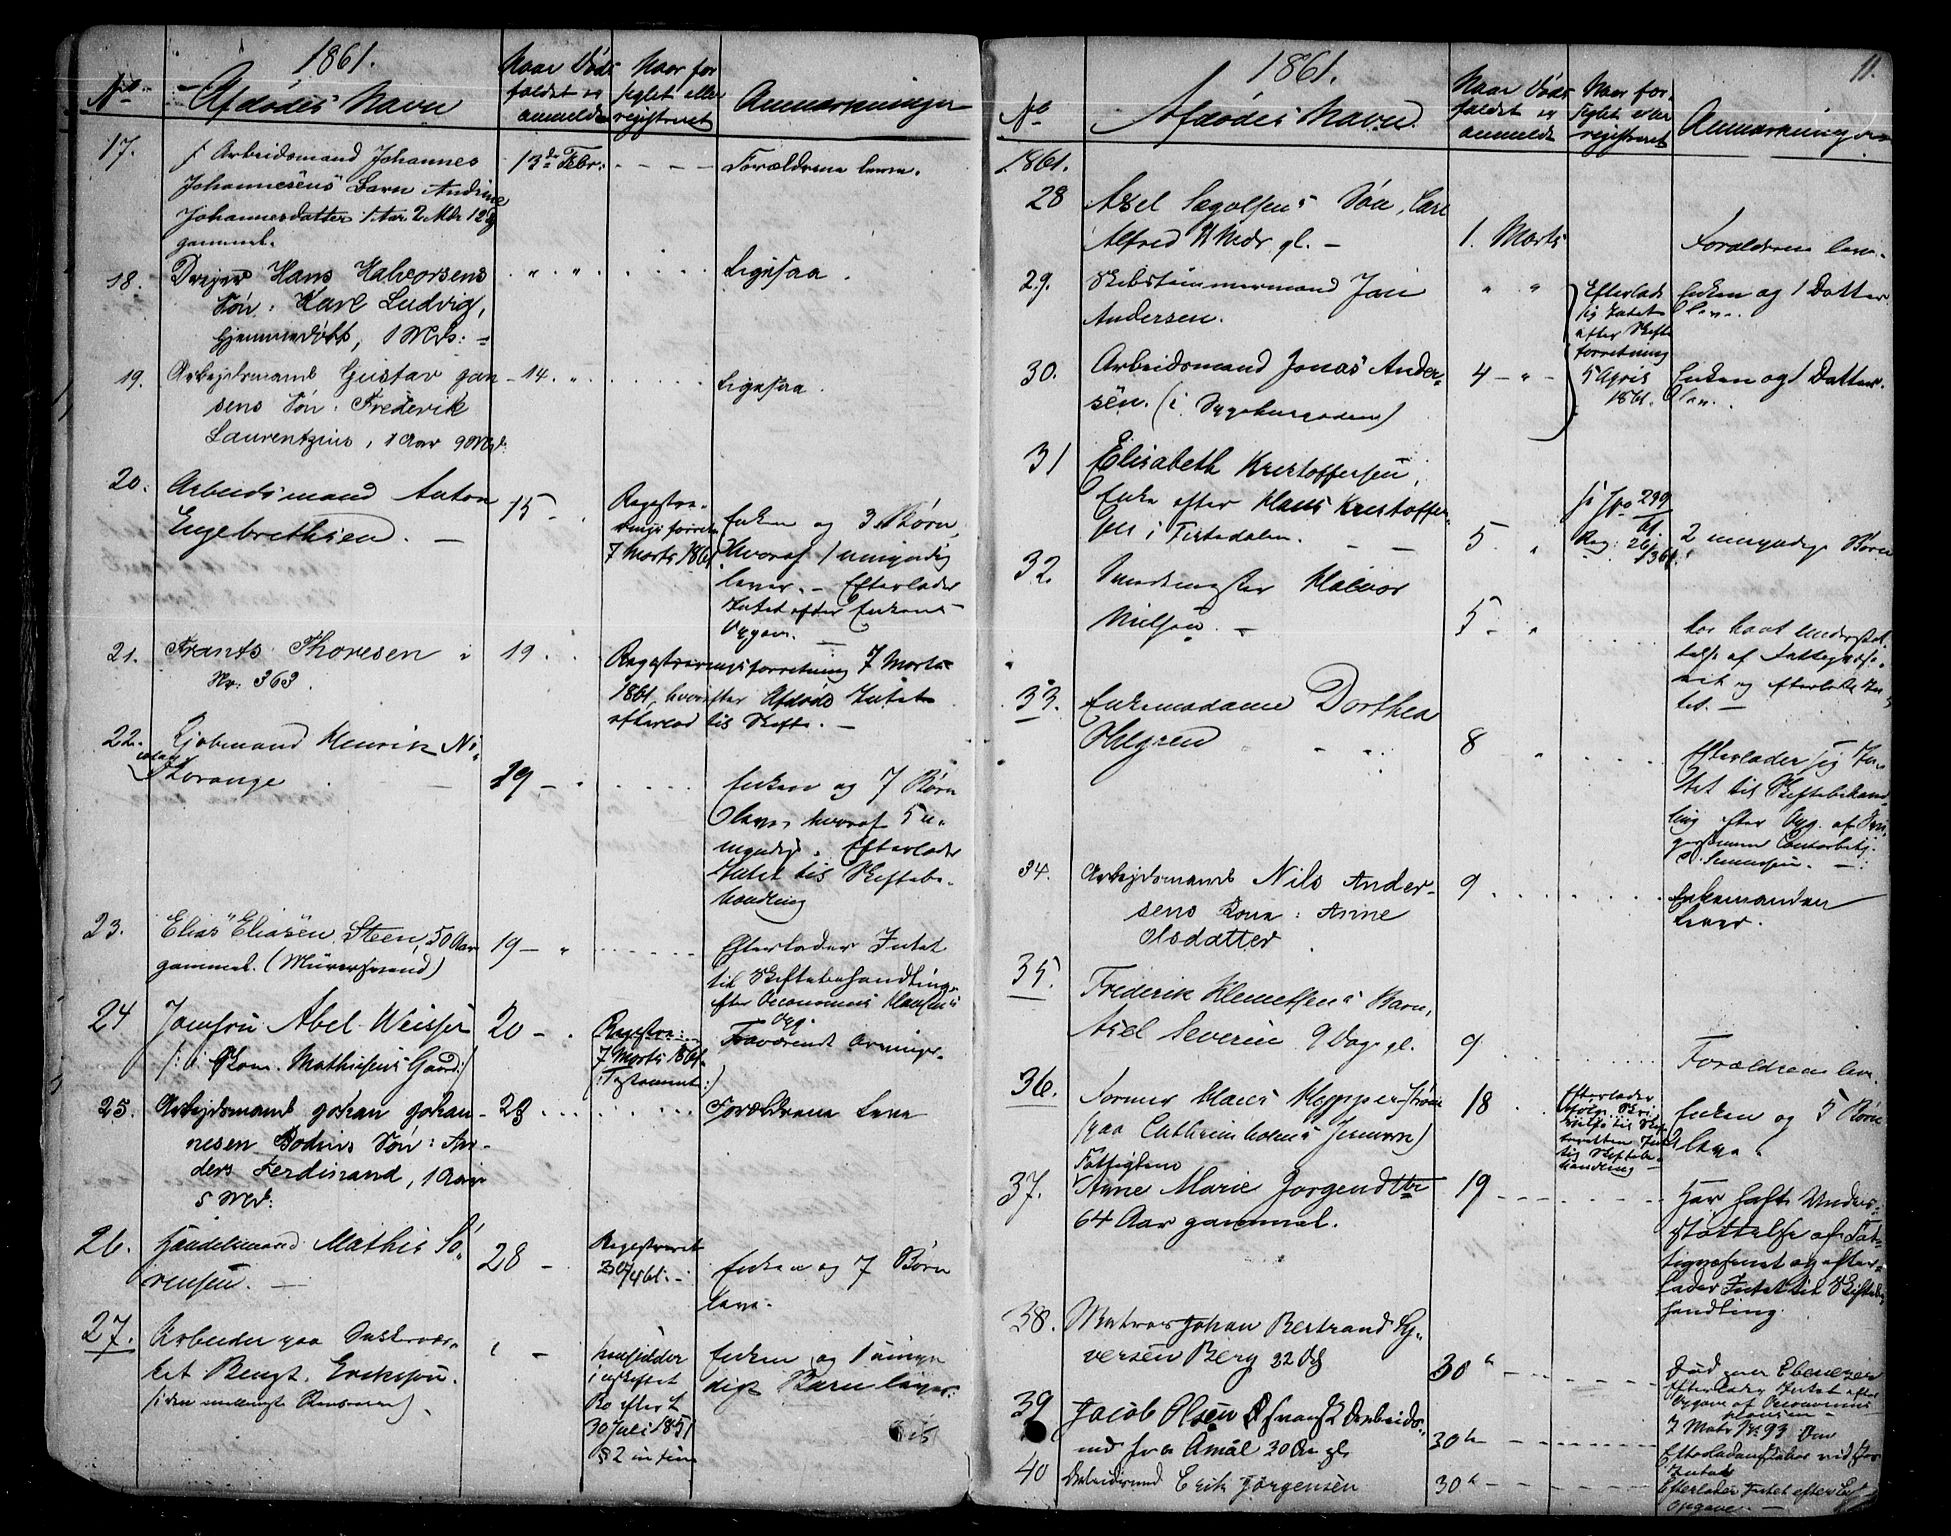 1861.
No
Afdødes Navn
Naar Døds
faldet er
anmeldt
Naar for
seglet eller
registreret
Anmærkninger
17.
Arbeidsmand Johannes
Johannesens Barn Andrine
Johannesdatter 1 Aar 2 Mdr 12 Dg
gammel.
13de Febr:
Forældrene leve.
18.
Drejer Hans Halvorsens
Søn: Karl Ludvig,
hjemmedøbt, 1 Md:
" "
Ligesaa.
19.
Arbejdsmand Gustav Jan-
sens Søn: Frederik
Laurentzius, 1 Aar 9 Md:
14. "
Ligesaa.
20.
Arbeidsmand Anton
Engebrethsen. —
15 -
Registre-
ringsforretn
7 Marts 1861
Enken og 3 Børn,
hvoraf 1 umyndig
lever. — Efterlader
Intet efter Enkens
Opgave.
21.
Frants Thoresen i
No. 363.
19.
Registreringsforretning 7 Marts
1861, hvorefter Afdøde Intet
efterlod til Skifte. —
22.
Kjøbmand Henrik Ni-
colai
Thorange
19 —
Enken og 7 Børn
leve, hvoraf 5 u-
myndige. Efterlader
Intet til Skiftebe-
handling
23.
Elias Eliasen Steen, 50 Aar
gammel. (Muursvend)
19 — "
Efterlader Intet
til Skiftebehandling
efter Oeconomus Klausens
Opg.
24
Jomfru Abel Weisser
(: i Kom. Mathiesens Gaard :)
20 -
Registre:
7 Marts 1861
(: Testament :)
Fraværende Arvinger.
25.
Arbejdsmand Johan Johan-
nesen Bodins Søn: An-
ders Ferdinand, 1 Aar
5 Md:
28
Forældrene Leve
26.
Handelsmand Mathis Sö-
rensen. —
28 -
Registreret
30/4 61. -
Enken og 7 Børn
leve.
27.
Arbeider paa
Bengt. Eriksson.
" —
hensidder
i uskiftet
Bo efter L
30 Juli 1851
§ 2 in fine
Enken og 1 umyn
digt Barn lever.
1861.
11.
No
Afdødes Navn.
Naar Døds
faldet er
anmeldt
Naar for-
seglet eller
registreret
Anmærkninger
1861.
28
Axel Søn, Carl
Alfred Mdr gl. —
1. Marts
Forældrene leve.
29.
Skibstømmermand Jan
Andersen.
" "
Efterlade
sig Intet
efter Skifte
forretning
5 April
1861.
Enken og 1 Datter
leve.
30.
Arbeidsmand Jonas Ander-
sen. (i Sygeburgaden)
4 — " —
Enken og 1 Datter
leve.
31
Elisabeth Kristoffersen,
Enke efter Klaus Kristoffer-
sen i Tistedalen.
5. "
Reg: 26/3 61.
2 umyndige Børn
32.
Halvor
Nielsen. —
5 - "
har havt Understøt-
telse af Fattigvæse-
net og efterlod In-
tet. —
33.
Enkemadame Dorthea
Ohlgren
8 "
Efterlader sig In-
tet til Skiftebehand-
ling efter Opg. af
34.
Arbejdsmand Nils Ander-
sens Kone: Anne
Olsdatter
9
Enkemanden
Lever.
35.
Frederik Klemetsens Barn,
Axel Severin 9 Dage gl.
9
Forældrene leve.
36.
Former Klaus Klepperstrøm
(paa Cathrineholms Jernværk)
18
Efterlader
ifølg. Skri
velse til Skif
teretten Intet
til Skiftebe-
handling —
Enken og 5 Børn
leve.
37.
Fattiglem
Anne Marie Jorgensdtr
64 Aar gammel.
19
Har haft Under-
støttelse af Fat-
tigvæsenet og efter-
lader Intet til Skiftebe
handling.
38.
Matros Johan Bertrand Sy-
versen Berg 32 Aar
30te
Død paa Ebenezer
Efterlader Intet efter
Opgave af Oeconomus
Klausen —
39
Jacob Olsen svensk Arbeids-
md fra Åmål 30 Aar gl.
30te
40
Arbeidsmand Erik Jörgensen
30te
Efterlader Intet efter
Opgave. —